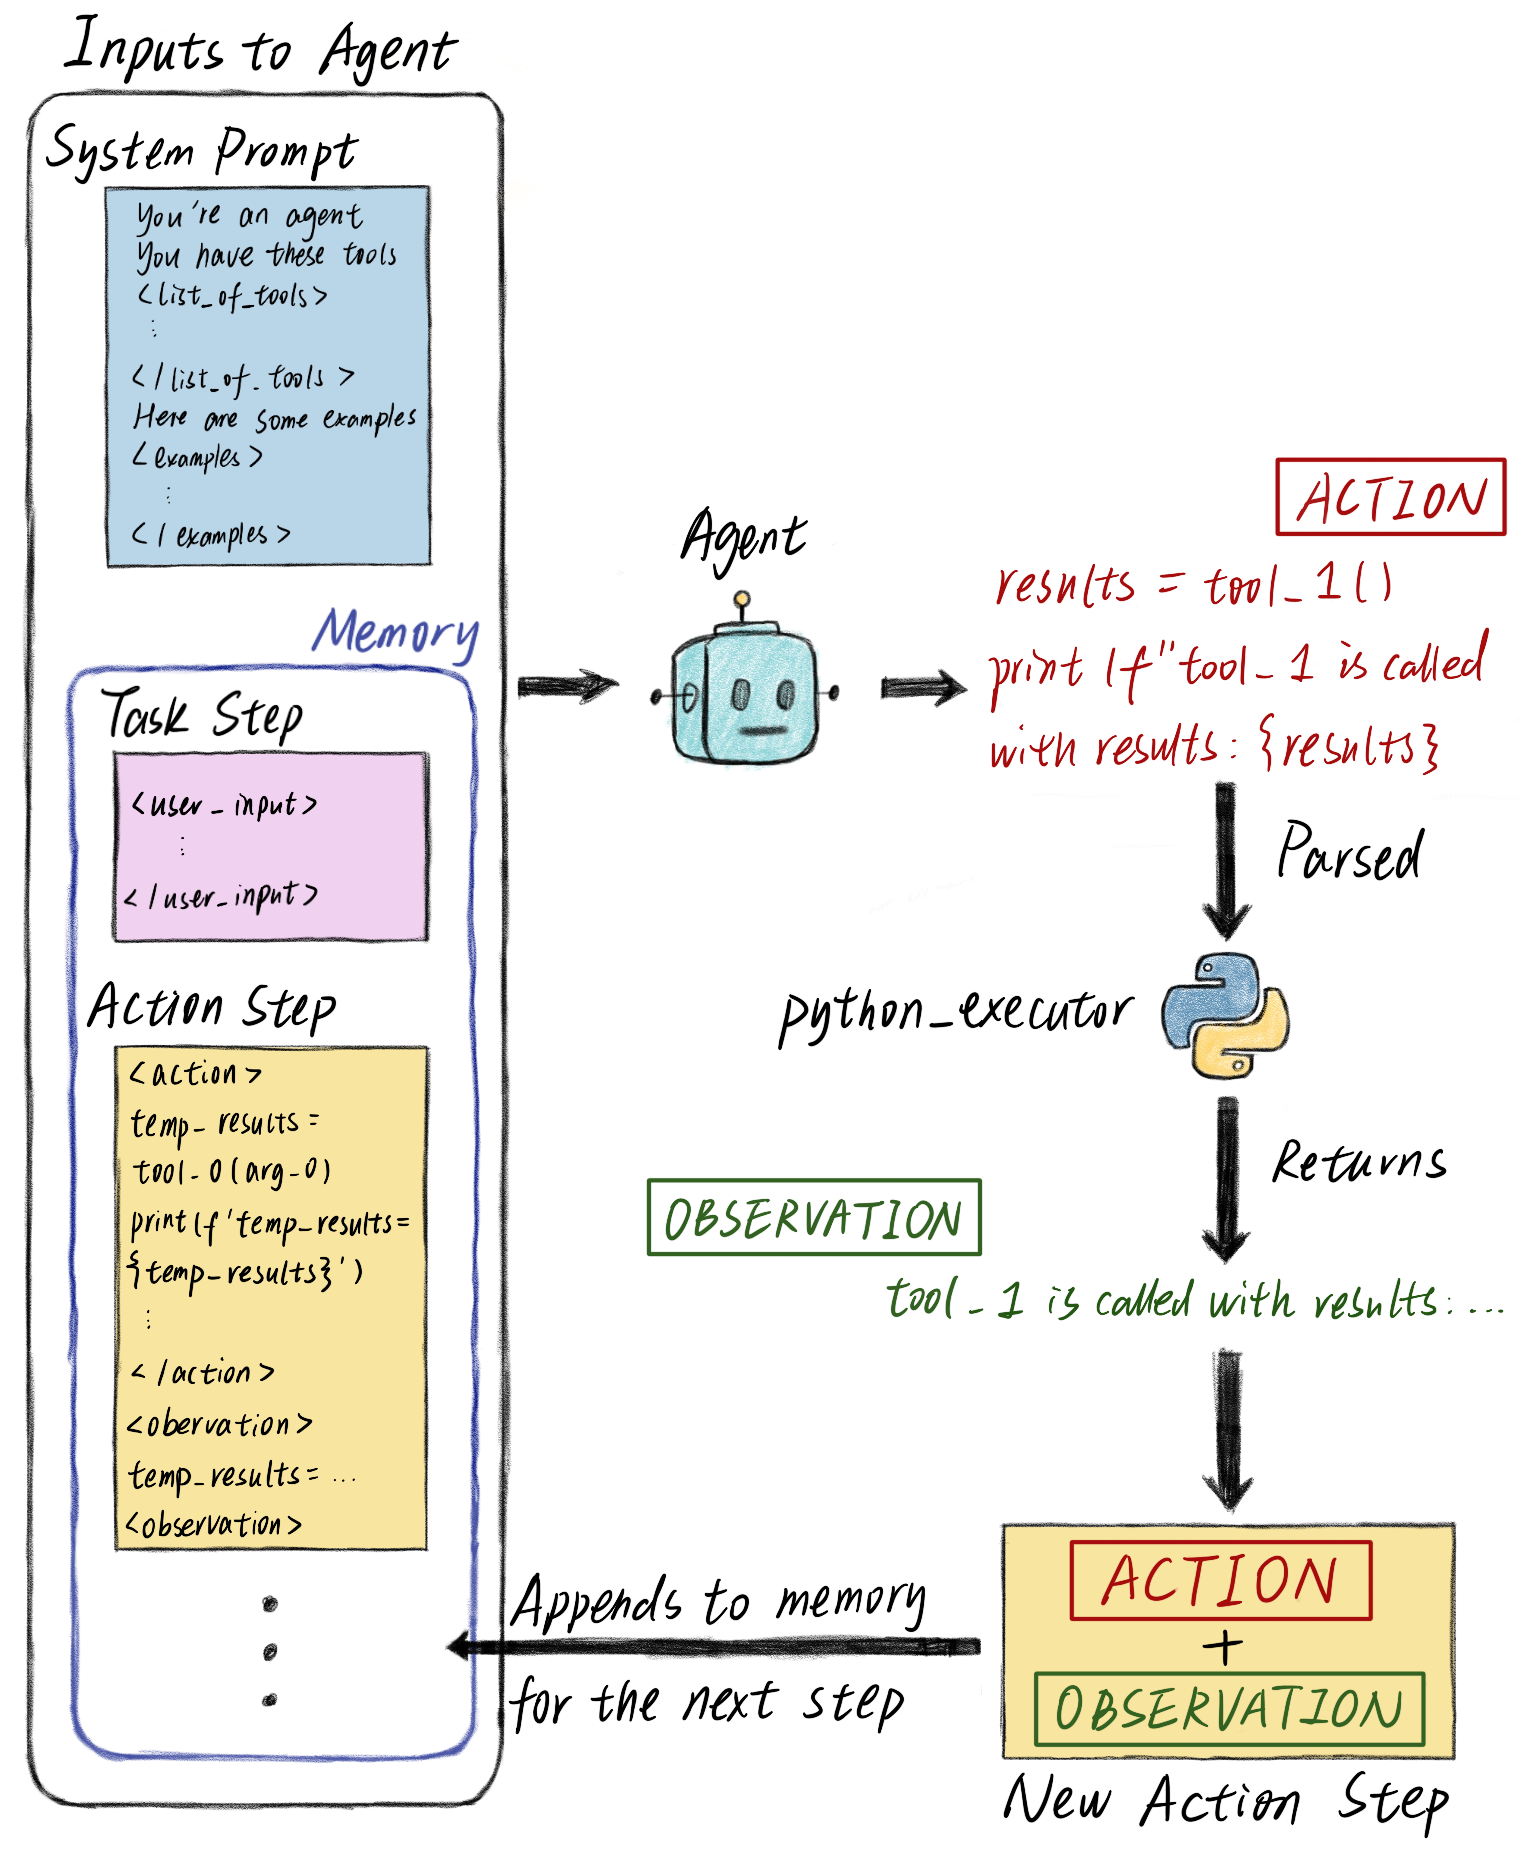 Inputs to Agent
System Prompt
You're an agent
You have these tools
<list_of_tools>
⋮
</list_of_tools>
Here are some examples
<examples>
⋮
</examples>
Memory
Task Step
<user_input>
⋮
</user_input>
Action Step
<action>
temp_results =
tool_0(arg_0)
print(f'temp_results=
{temp_results}')
⋮
</action>
<obervation>
temp_results= ...
<observation>
Agent
ACTION
results = tool_1()
print(f"tool_1 is called
with results: {results}
Parsed
python_executor
Returns
OBSERVATION
tool_1 is called with results: ...
ACTION
+
OBSERVATION
New Action Step
Appends to memory
for the next step